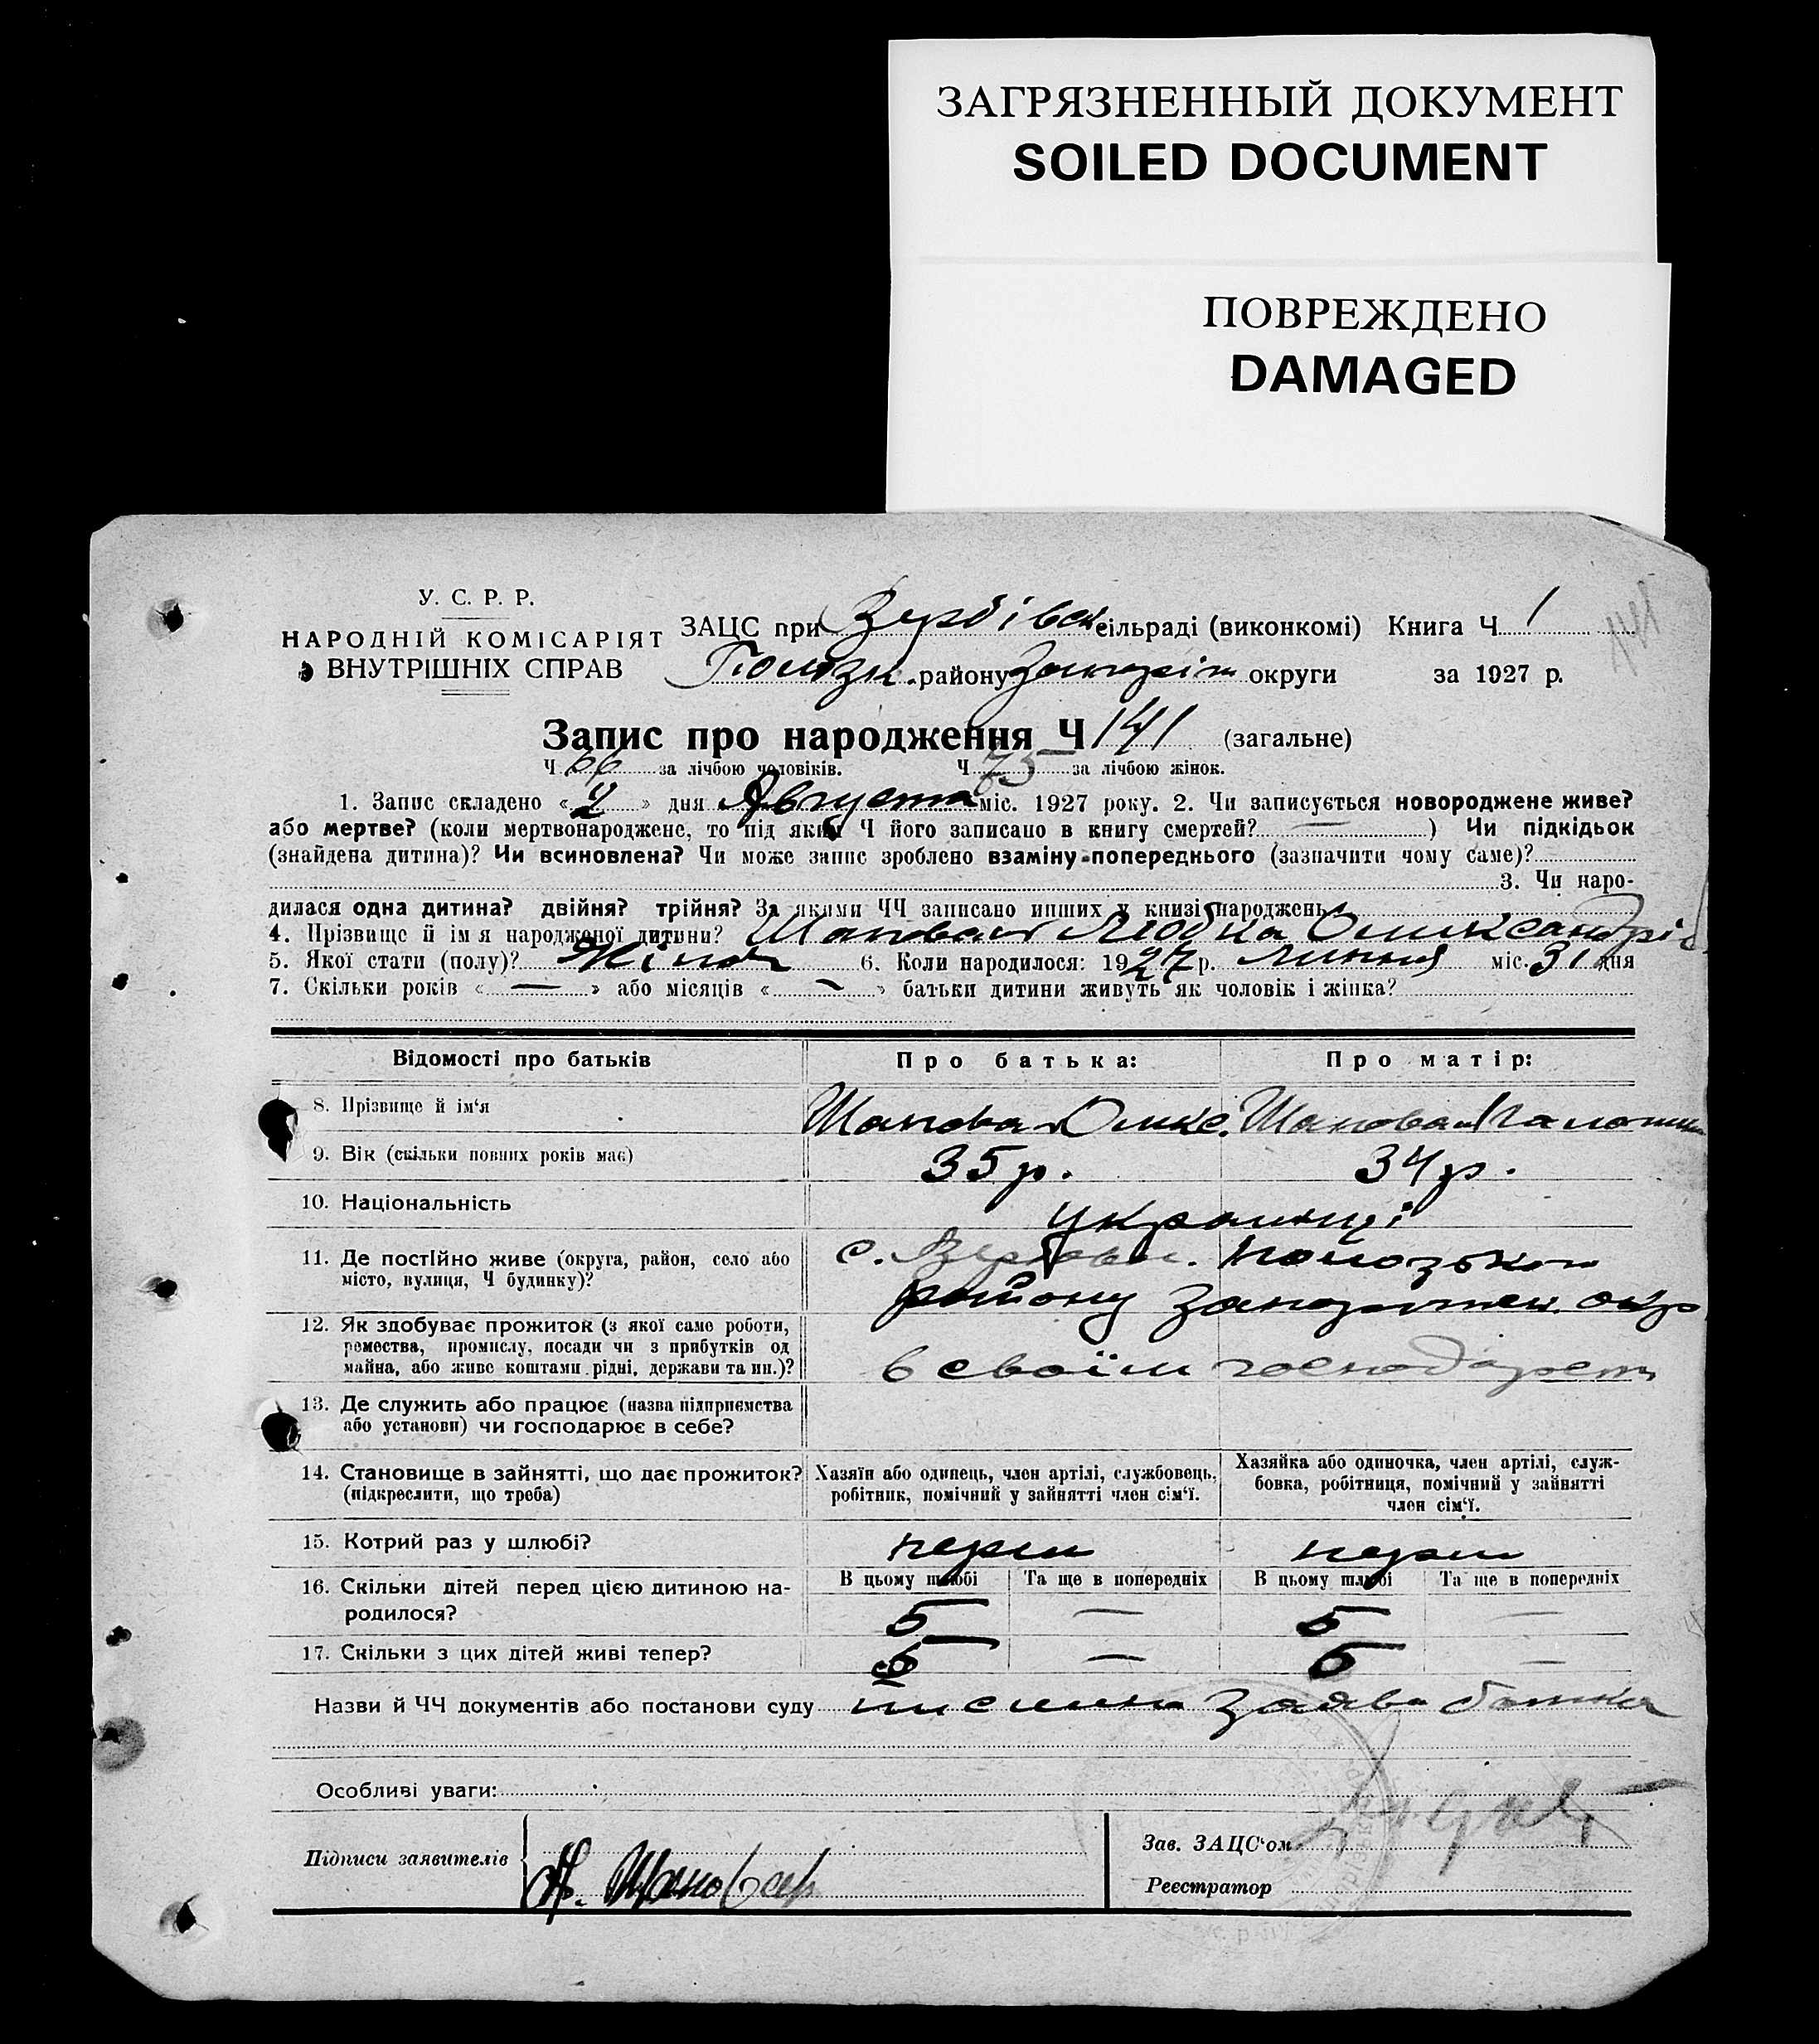 ЗАГРЯЗНЕННЫЙ ДОКУМЕНТ
SOILED DOCUMENT
ПОВРЕЖДЕНО
DAMAGED
У. С. Р. Р.
НАРОДНІЙ КОМІСАРІЯТ
ВНУТРІШНІХ СПРАВ
ЗАЦС при Вербівск сільраді (виконкомі) Книга Ч 1
району округи за 1927 р.
Запис про народження Ч 141 (загальне)
Ч 66 за лічбою чоловіків. Ч 75 за лічбою жінок.
1. Запис складено « 2 » дня Августа міс. 1927 року. 2. Чи записується новороджене живе?
або мертве? (коли мертвонароджене, то під яким Ч його записано в книгу смертей? — ) Чи підкідьок
(знайдена дитина)? Чи всиновлена? Чи може запис зроблено взаміну попереднього (зазначити чому саме)?
3. Чи наро-
дилася одна дитина? двійня? трійня? За якими ЧЧ записано инших у книзі народжень
4. Прізвище й ім я народженої дитини? Шаповал Любка
5. Якої стати (полу)? Жіноч 6. Коли народилося: 1927 р. Липня міс. 31 дня
7. Скільки років « — » або місяців « — » батьки дитини живуть як чоловік і жінка?
Відомості про батьків Про батька: Про матір:
8. Прізвище й ім‘я Шаповал Олекс. Шаповал
9. Вік (скільки повних років має) 35 р. 34 р.
10. Національність українці
11. Де постійно живе (округа, район, село або
місто, вулиця, Ч будинку)?
с. Вербове.
району
12. Як здобуває прожиток (з якої саме роботи,
ремества, промислу, посади чи з прибутків од
майна, або живе коштами рідні, держави та ин.)?
в своїм господарст
13. Де служить або працює (назва підприємства
або установи) чи господарює в себе?
14. Становище в зайнятті, що дає прожиток?
(підкреслити, що треба)
Хазяїн або одинець, член артілі, службовець,
робітник, помічний у зайнятті член сім‘ї.
Хазяйка або одиночка, член артілі, служ-
бовка, робітниця, помічний у зайнятті
член сім‘ї.
15. Котрий раз у шлюбі? перш перш
16. Скільки дітей перед цією дитиною на-
родилося?
В цьому шлюбі Та ще в попередніх В цьому шлюбі Та ще в попередніх
5 — 5 —
17. Скільки з цих дітей живі тепер? 5 — 5 —
Назви й ЧЧ документів або постанови суду заява батька
Особливі уваги:
Підписи заявителів
Зав. ЗАЦС‘ом
Реєстратор